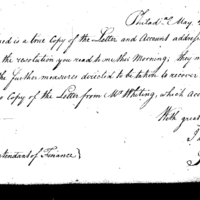 Philad.a May,
is a true Copy of the Letter and Account address
the resolution you read to me this Morning; they
the further measures decided to be taken to recover
Copy of the Letter from Mr Whiting, which acc
With great
tendant of Finance}